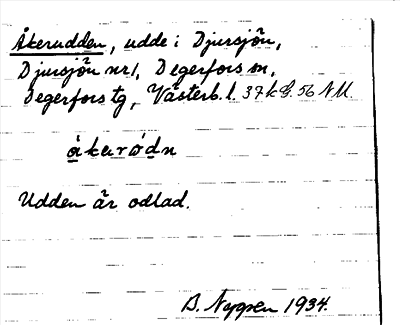 Åkerudden, udde i Djursjön,
Djursjön nr 1, Degerfors sn,
Degerfors tg, Västerb. l. 37 k B. 56 NU.
åkarødn
Udden är odlad.
B. Nyppen 1934.